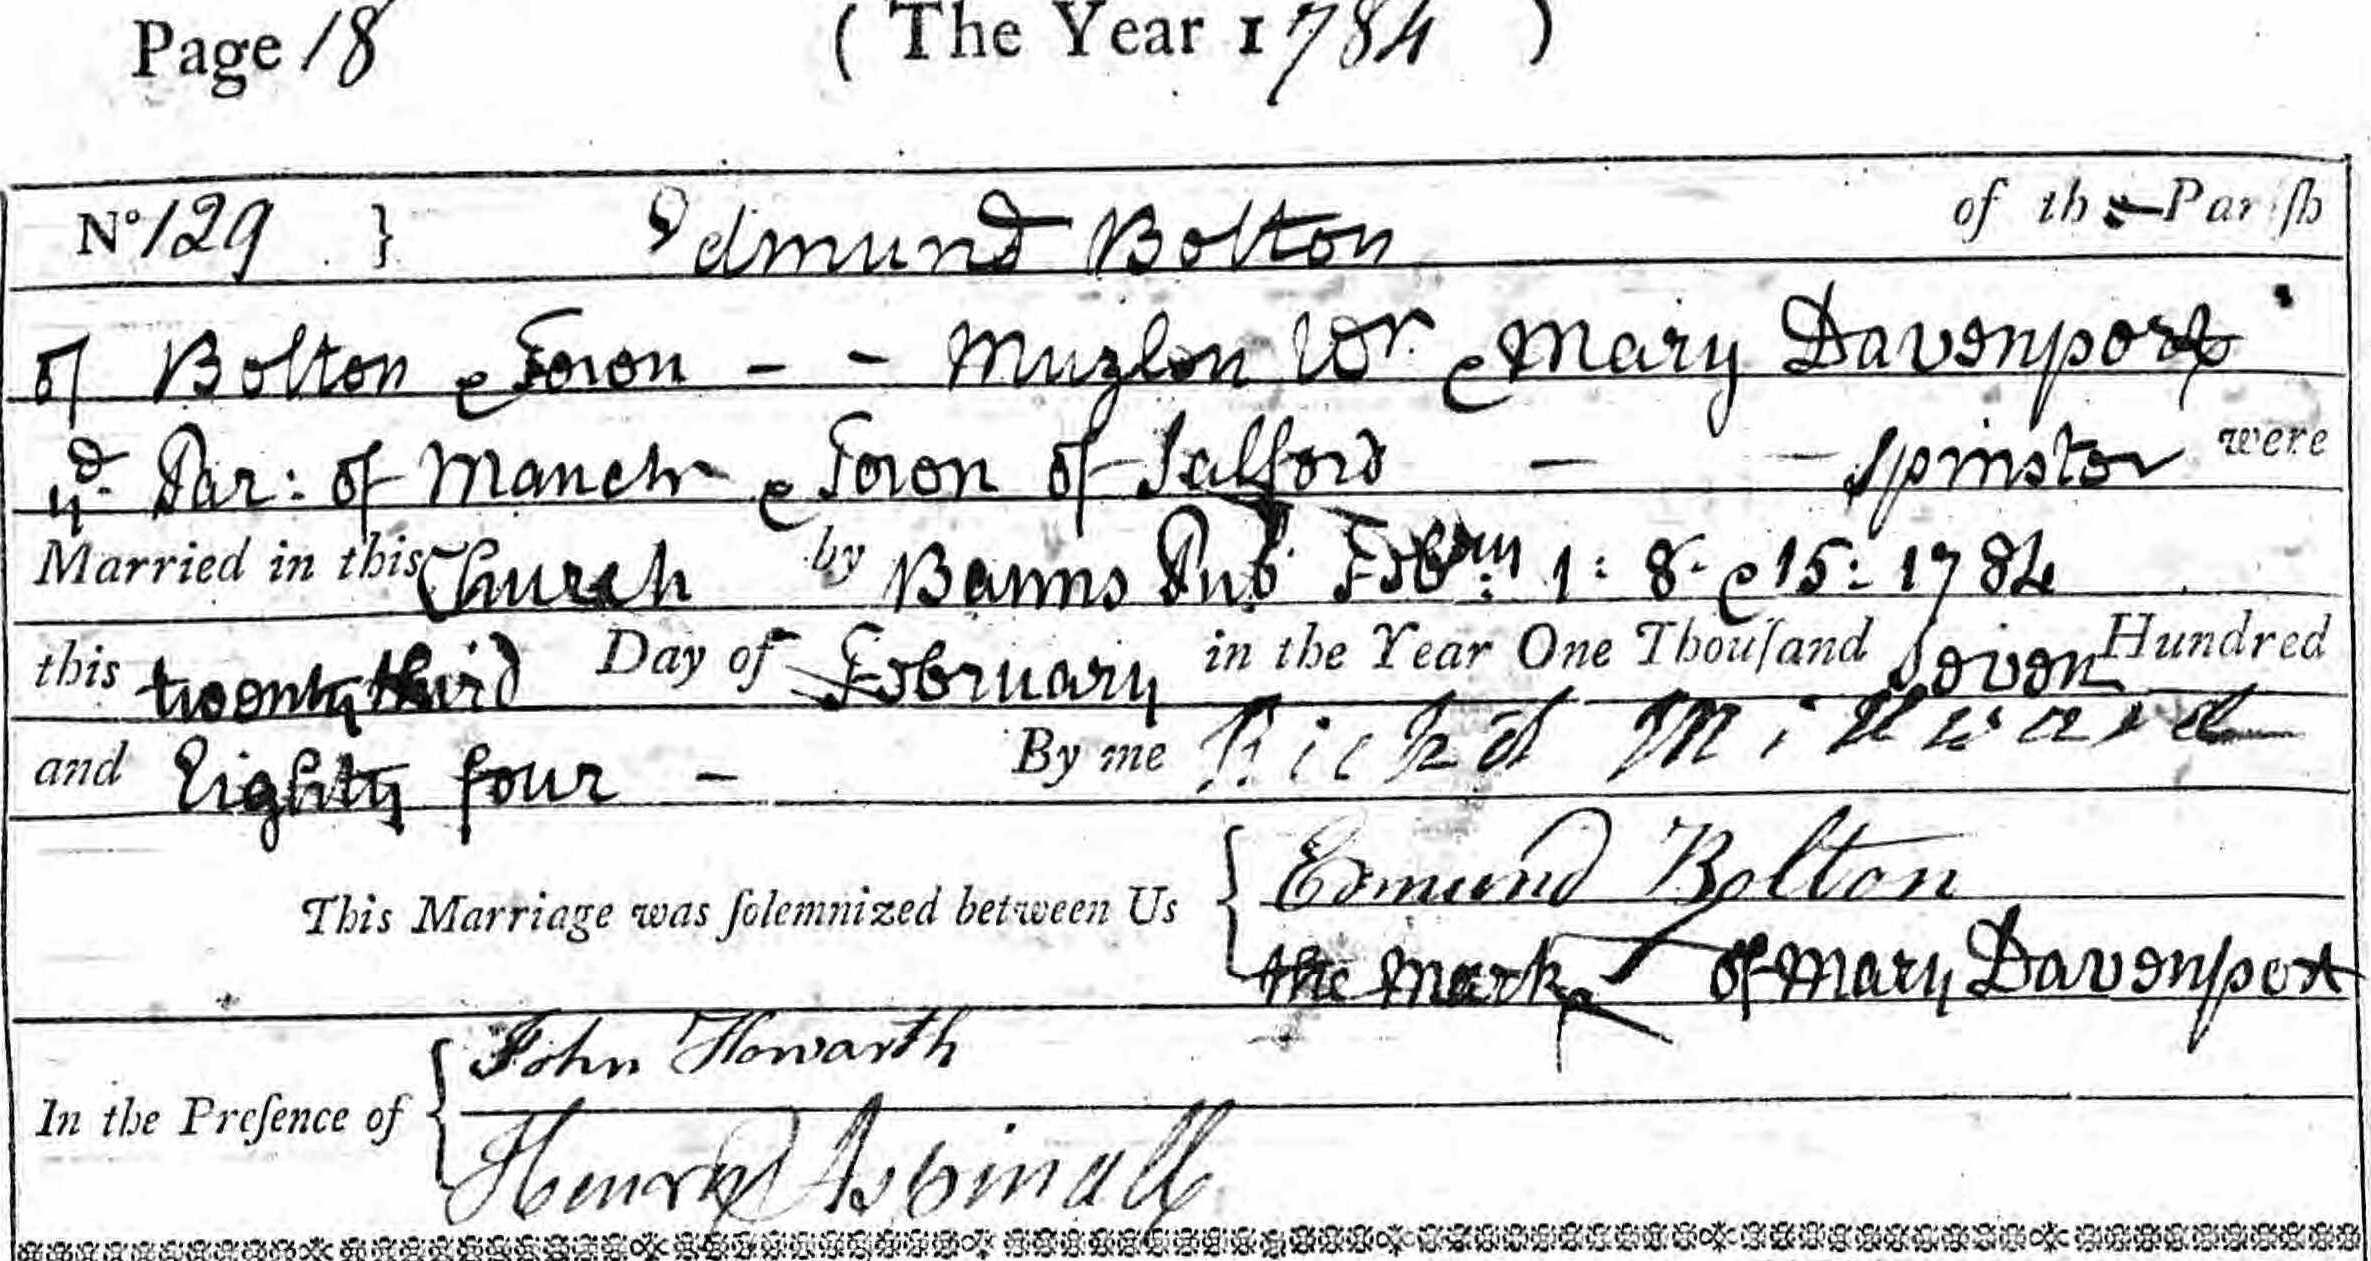 Page 18 ( The Year 1784 )
No 129 } Edmund Bolton of the Pariſh
of Bolton & Town - - Muzlen Wr. & Mary Davenport
yd. Par: of Manchr & Town of Salford - - Spinster were
Married in this Church by Banns Pubd. Febry: 1: 8. & 15: 1784
this twenty third Day of February in the Year One Thouſand Seven Hundred
and Eighty four - By me Richd Millward
This Marriage was ſolemnized between Us { Edmund Bolton
the Mark of Mary Davenport
In the Preſence of { John Howarth
Henry Aspinall